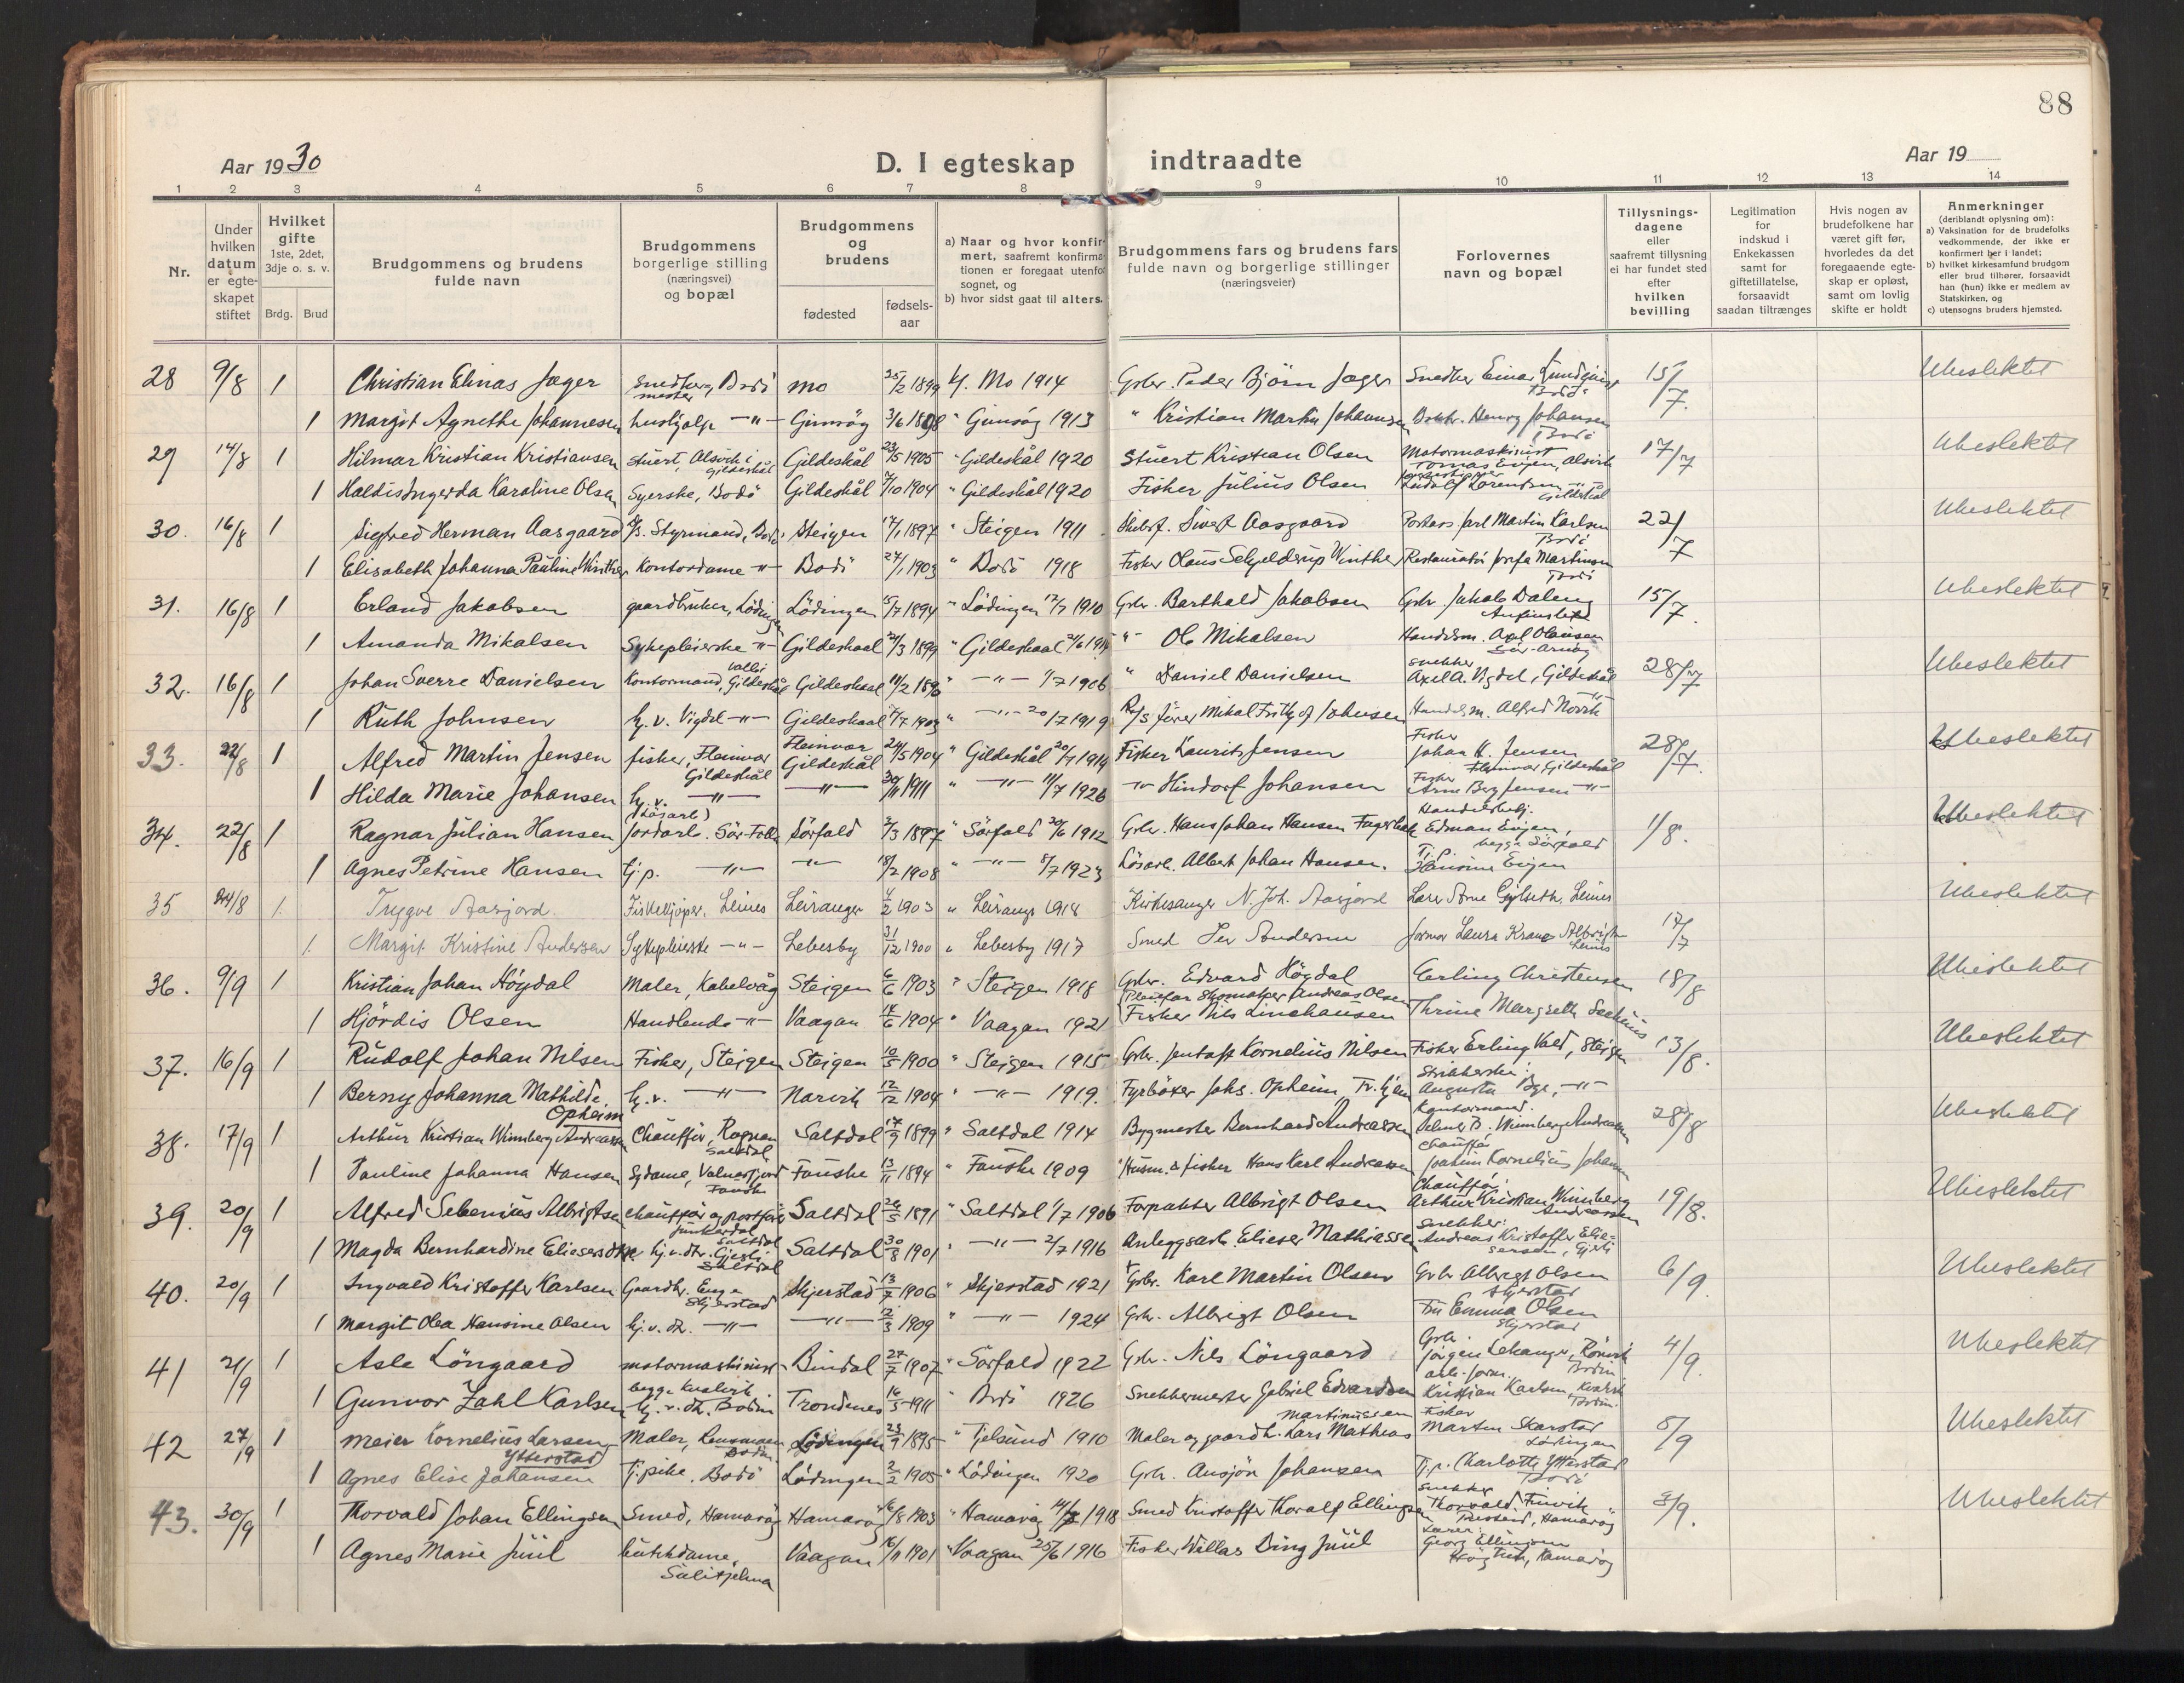 88
Aar 1930
D. I egteskap indtraadte
Aar 19
1 2 3 4 5 6 7 8 9 10 11 12 13 14
Nr.
Under hvilken datum er egteskapet stiftet
Hvilket gifte 1ste, 2det, 3dje o. s. v.
Brdg. Brud
Brudgommens og brudens fulde navn
Brudgommens borgerlige stilling (næringsvei) og bopæl
Brudgommens og brudens
fødested
fødsels-aar
a) Naar og hvor konfirmert, saafremt konfirmationen er foregaat utenfor sognet, og
b) hvor sidst gaat til alters.
Brudgommens fars og brudens fars fulde navn og borgerlige stillinger (næringsveier)
Forlovernes navn og bopæl
Tillysningsdagene eller saafremt tillysning ei har fundet sted efter hvilken bevilling
Legitimation for indskud i Enkekassen samt for giftetillatelse, forsaavidt saadan tiltrænges
Hvis nogen av brudefolkene har været gift før, hvorledes da det foregaaende egteskap er opløst, samt om lovlig skifte er holdt
Anmerkninger (deriblandt oplysning om):
a) Vaksination for de brudefolks vedkommende, der ikke er konfirmert her i landet;
b) hvilket kirkesamfund brudgom eller brud tilhører, forsaavidt han (hun) ikke er medlem av Statskirken, og
c) utensogns bruders hjemsted.
28 9/8 1 Christian Elinas Jæger Snedkermester, Bodö Mo 25/2 1899 Mo 1914 Grbr. Peder Björn Jæger Snedker Einar Lundqvist Bodö 15/7. Ubeslektet
1 Margit Agnethe Johannesen hushjelp -"- Gimsöy 3/6 1898 " Gimsöy 1913 " Kristian Martin Johannesen Henry Johansen Bodö
29 14/8 1 Hilmar Kristian Kristiansen Stuert, Alsvik i Gildeskål Gildeskål 23/5 1905 " Gildeskål 1920 Stuert Kristian Olsen Motormaskinist Tomas Evjen, Alsvik 17/7 Ubeslektet
1 Haldis Ingerda Karoline Olsen Syerske, Bodö Gildeskål 7/10 1904 " Gildeskål 1920 Fisker Julius Olsen Ludolf Lorentsen Gildeskål
30. 16/8 1 Sigfred Herman Aasgaard Styrmand, Bodö Steigen 17/1 1897 " Steigen 1911 Sivert Aasgaard Karl Martin Karlsen Bodö 22/7 Ubeslektet
1 Elisabeth Johanna Pauline Winther Kontordame -"- Bodö 27/1 1903 " Bodö 1918 Fisker Olaus Schjelderup Winther Martinsen Bodö
31. 16/8 1 Erland Jakobsen gaardbruker, Lödingen Lödingen 15/7 1894 " Lödingen 17/7 1910 Grbr. Barthald Jakobsen Grbr. Jakob Daleng 15/7. Ubeslektet
1 Amanda Mikalsen Sykepleierske -"- Gildeskaal 24/3 1899 " Gildeskaal "- Ole Mikalsen Handelsm. Axel Olausen Sör-Arnöy
32. 16/8 1 Johan Sverre Danielsen Kontormand, Gildeskål Gildeskaal 11/2 1890 " -"- 1/7 1906 " Daniel Danielsen Snekker Axel A. Vigdel, Gildeskål 28/7 Ubeslektet
1 Ruth Johnsen hj. v. Vigdel -"- Gildeskaal 7/7 1903 " -"- 20/7 1919 R/S förer Mikal Fritjof Johnsen Handelsm. Alfred Norvik -"-
33. 22/8 1 Alfred Martin Jensen fisker, Fleinvær Gildeskål Fleinvær Gildeskål 24/5 1904 " Gildeskål 20/7 1919 Fisker Laurits Jensen Fisker Johan H. Jensen Fleinvær Gildeskål 28/7. Ubeslektet
1 Hilda Marie Johansen hj. v. -"- -"- 30/11 1911 " -"- 11/7 1926 -"- Hindorf Johansen Fisker Arne Berg Jensen -"-
34. 22/8 1 Ragnar Julian Hansen (Lösarb) Jordarb. Sör-Folla Sörfold 2/3 1897 " Sörfold 20/6 1912 Grbr. Hans Johan Hansen Fagerbakk Handelsbetj. Edman Evjen, begge Sörfold 1/8. Ubeslektet
1 Agnes Petrine Hansen tj.p. -"- -"- 18/2 1908 " -"- 8/7 1923 Lösarb. Albert Johan Hansen. Hansine Evjen
35 24/8 1. Trygve Aasjord. Fiskekjöper, Leines Leiranger 4/2 1903 " Leiranger 1918 Kirkesanger N. Joh. Aasjord Lærer Arne Gylseth, Leines 17/7 Ubeslektet
1. Margit Kristine Andersen Sykepleierske -"- Lebesby 31/12 1900 " Lebesby 1917 Smed Per Andersen Jormor Laura Krane Leines
36. 9/9 1 Kristian Johan Högdal Maler, Kabelvåg Steigen 6/6 1903 " Steigen 1918 Grbr. Edvard Högdal Erling Christensen 18/8 Ubeslektet
1 Hjördis Olsen Handlende -"- Vaagan 14/6 1904 " Vaagan 1921 Pleiefar Skomaker Andreas Olsen Fisker Nils Linehausen Thrine Margreth
37. 16/9 1 Rudolf Johan Nilsen Fisker, Steigen Steigen 10/5 1900 " Steigen 1915 Grbr. Kornelius Nilsen Fisker Erling Vold, Steigen 13/8. Ubeslektet
1 Berny Johanna Mathilde Opheim hj. v. -"- Narvik 12/12 1904 " -"- 1919. Fyrböter Johs. Opheim Augusta -"-
38. 17/9 1 Arthur Kristian Winnberg Andreassen Chaufför, Rognan Saltdal Saltdal 17/9 1899 " Saltdal 1914 Bygmester Bernhard Andreassen Kontormand. Winnberg Andreassen 28/8 Ubeslektet
1 Pauline Johanna Hansen Sydame, Valnesfjord Fauske Fauske 13/11 1894 " Fauske 1909 Husm. & fisker Hans Karl Andreassen Chauffør Joakim Kornelius Johansen
39. 20/9 1 Alfred Sebenius Albrigtsen chauffør og postförer Junkerdal Saltdal Saltdal 26/5 1891 " Saltdal 1/7 1906 Forpakter Albrigt Olsen Chauffør: Arthur Kristian Winnberg Andreassen 19/8. Ubeslektet
1 Magda Bernhardine Eliesersdtr. hj.v.dtr. Saltdal Saltdal 30/8 1901 " -"- 2/7 1916 Anleggsarb. Elieser Mathiassen Snekker: Andreas Kristoffer Eliesersen
40. 20/9 1 Ingvald Kristoffer Karlsen Gaardbr. Skjerstad Skjerstad 13/7 1906 " Skjerstad 1921 Grbr. Karl Martin Olsen Grbr Albrigt Olsen Skjerstad 6/9. Ubeslektet
1 Margit Olea Hansine Olsen hj.v.dt. -"- -"- 12/3 1909 " -"- 1924 Grbr. Albrigt Olsen Fru Emma Olsen Skjerstad
41 21/9 1 Asle Löngaard motormaskinist Bindal 27/7 1907 " Sörfold 1922 Grbr. Nils Löngaard Grbr. Jörgen Lekanger, Rönvik Bodin 4/9. Ubeslektet
1 Gunvor Zahl Karlsen begge Kvalvik. hj. v. dt. Bodin Trondenes 16/5 1911 " Bodö 1926 Snekkermester Gabriel Edvardsen Kristian Karlsen, Kvalvik Bodin.
42 27/9 1 Meier Kornelius Larsen Ytterstad Maler, Rensmoen Bodin Lödingen 23/9 1895 " Tjelsund 1910 Maler og gaardb. Lars Mathias Martinussen Fisker Martin Skarstad Lödingen 5/9 Ubeslektet
1 Agnes Elise Johansen Tj.pike, Bodö Lödingen 2/2 1905 " Lödingen 1920 Grbr. Ansjön Johansen Tj.p. Charlotte Ytterstad Bodö
43. 30/9 1 Thorvald Johan Ellingsen Smed, Hamaröy Hamaröy 16/8 1903 " Hamaröy 14/7 1918 Smed Kristoffer Thoralf Ellingsen Snekker Thorvald Finvik Presteid, Hamaröy 3/9. Ubeslektet
1 Agnes Marie Juul butikdame, Sulitjelma Vaagan 16/11 1901 " Vaagan 25/6 1916 Fisker Willas Bing Juul Lærer: Georg Ellingsen Hamaröy